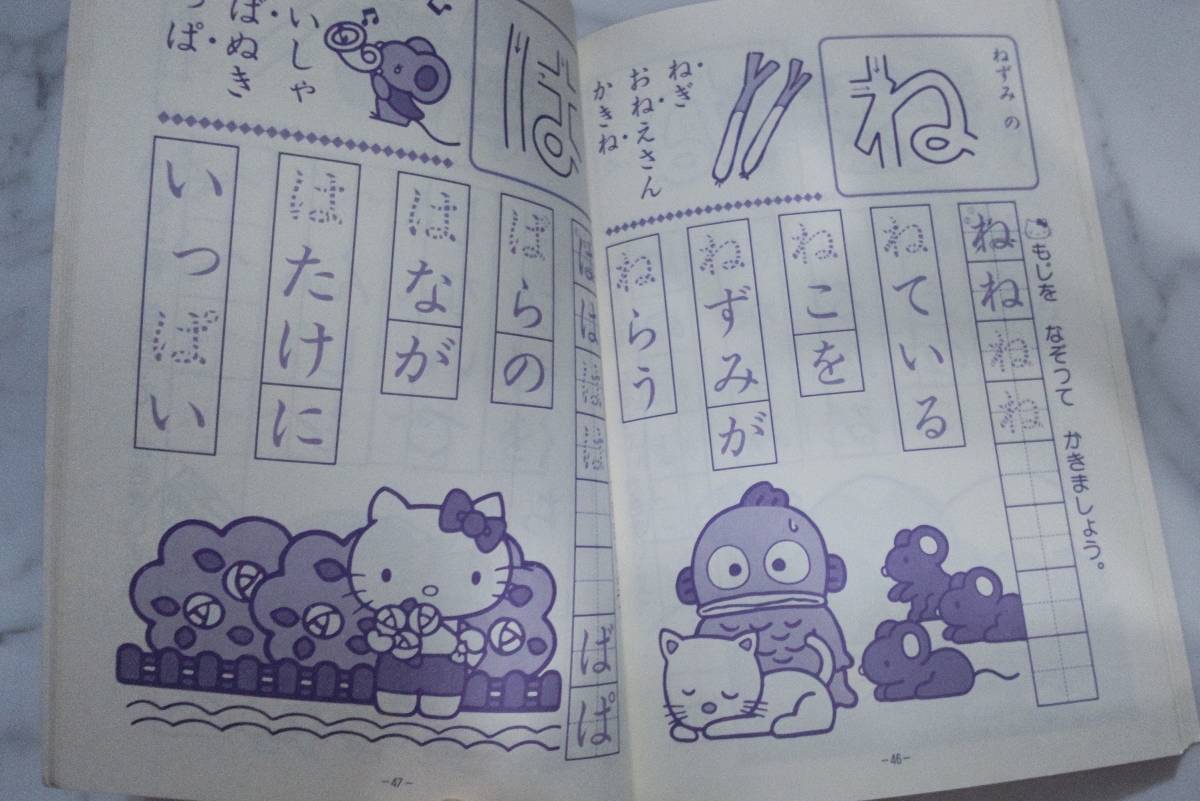 ねずみ の
ね
ねぎ
おねえさん
かきね
もじを なぞって かきましょう。
ねねねね
ねている
ねこを
ねずみが
ねらう
-46-
は
いしゃ
ばぬき
っぱ
はははは
ば
ぱ
ばらの
はなが
はたけに
いっぱい
-47-